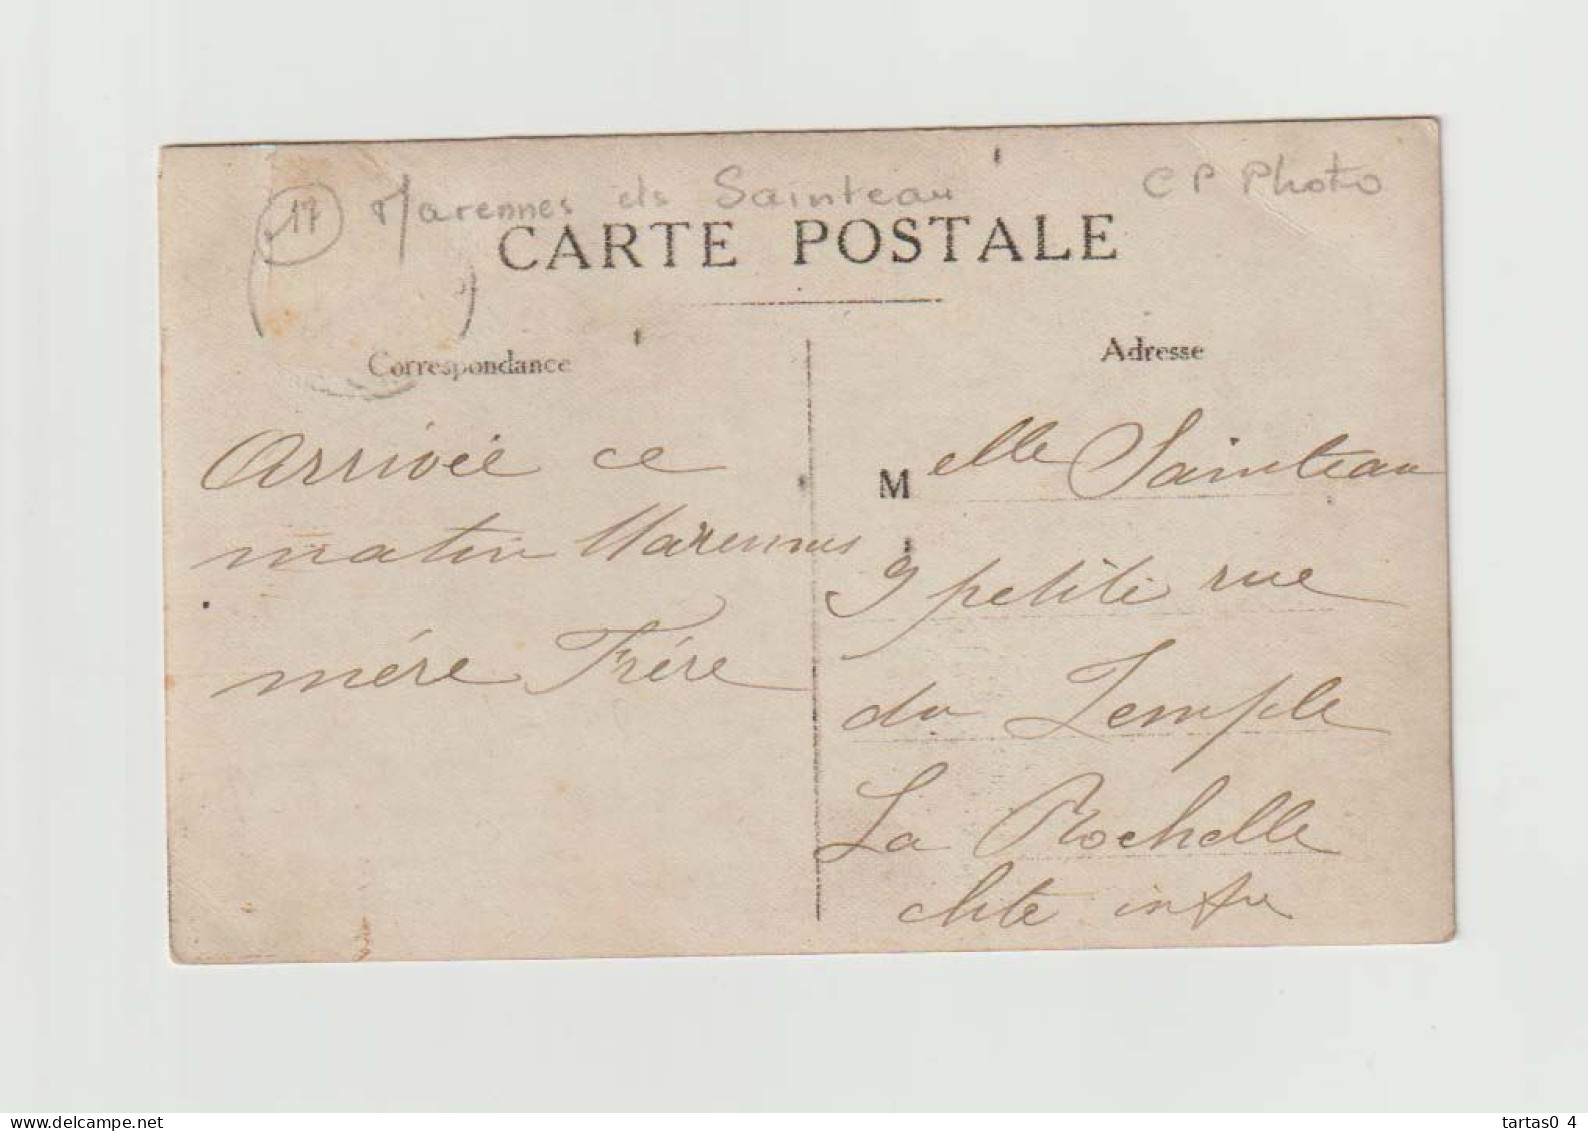 17 Marennes ets Sainteau
CP Photo
CARTE POSTALE
Correspondance
Arrivée ce
matin Marennes
mére Frére
Adresse
Melle Sainteau
9 petite rue
du Temple
La Rochelle
chte infre
my.delcampe.net
tartas0 4